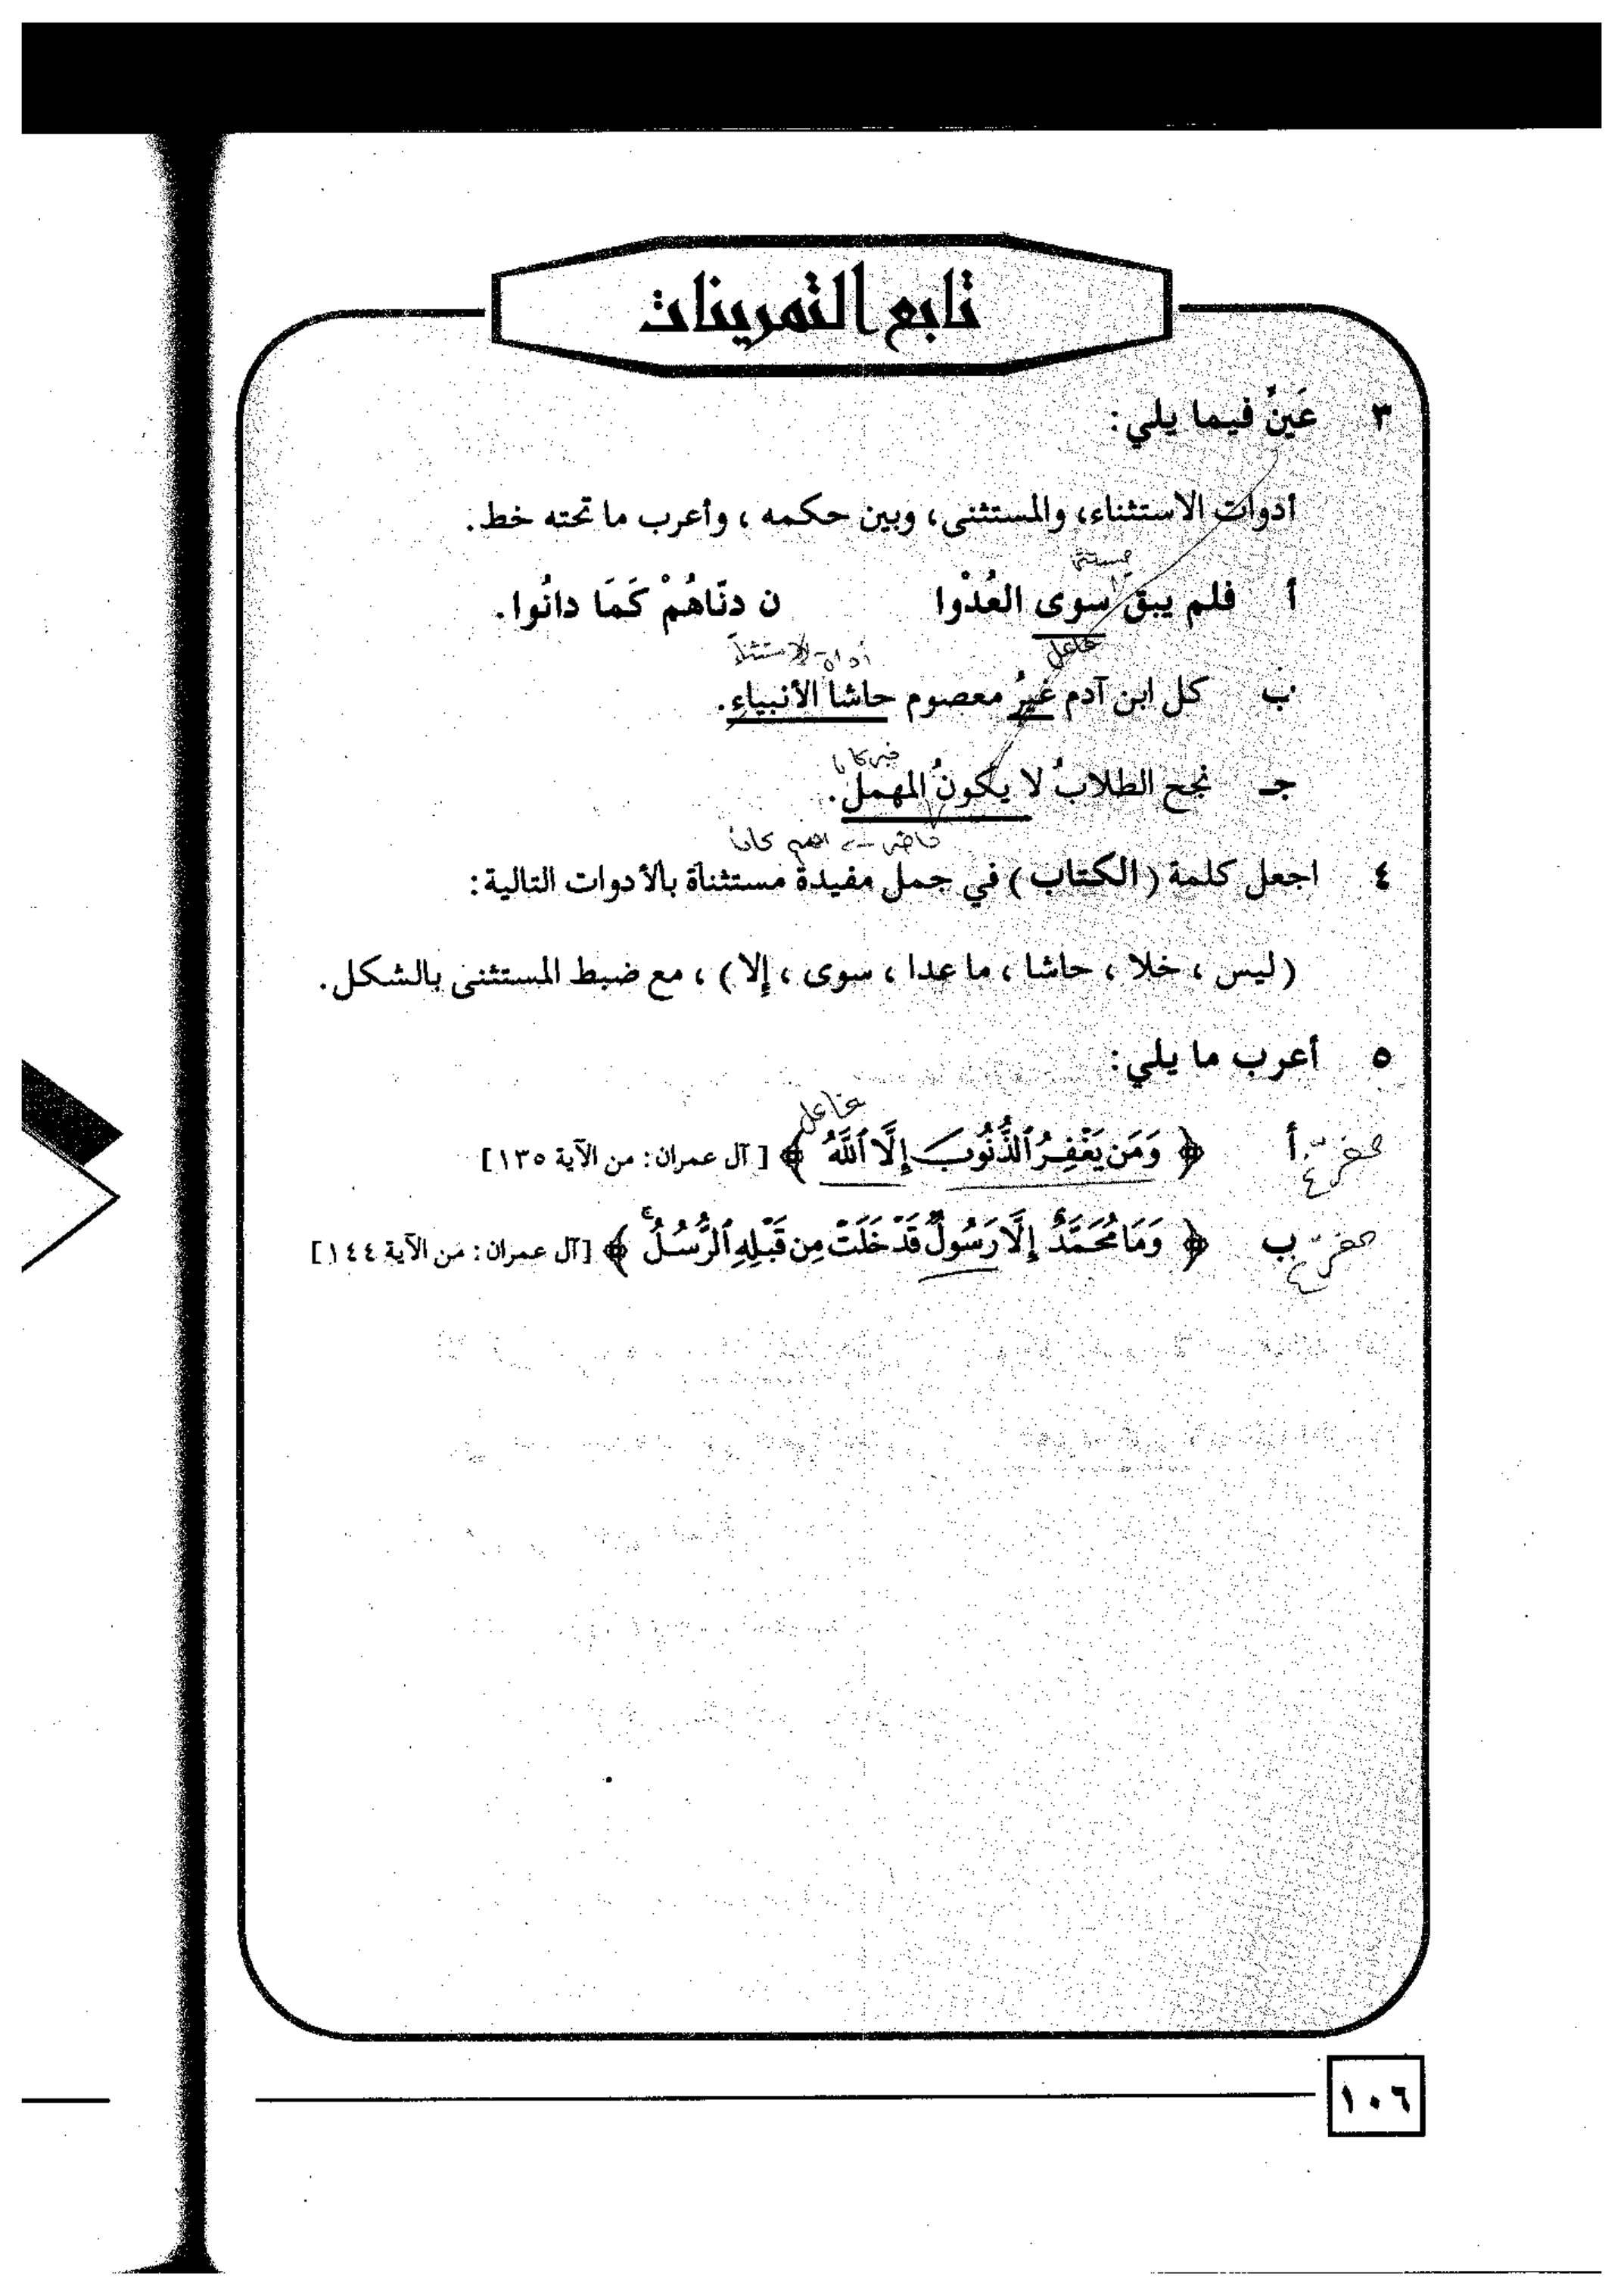 تابع التمرينات
٣ عَينْ فيما يلي:
أدوات الاستثناء، والمستثنى، وبين حكمه، وأعرب ما تحته خط.
مستثنى
أ فلم يبق سوى العُدْوا ن دنّاهُمْ كَمَا دانُوا.
فاعل أداة الاستثناء
ب كل ابن آدم غيرُ معصوم حاشا الأنبياءِ.
خبر كان
جـ نجح الطلابُ لا يكونُ المهملَ.
اسم كان
٤ اجعل كلمة (الكتاب) في جمل مفيدة مستثناة بالأدوات التالية:
(ليس، خلا، حاشا، ما عدا، سوى، إلا)، مع ضبط المستثنى بالشكل.
٥ أعرب ما يلي:
فاعل
أ ﴿ وَمَن يَغْفِرُ ٱلذُّنُوبَ إِلَّا ٱللَّهُ ﴾ [آل عمران: من الآية ١٣٥] مفرّغ
ب ﴿ وَمَا مُحَمَّدٌ إِلَّا رَسُولٌ قَدْ خَلَتْ مِن قَبْلِهِ ٱلرُّسُلُ ﴾ [آل عمران: من الآية ١٤٤] مفرّغ
١٠٦